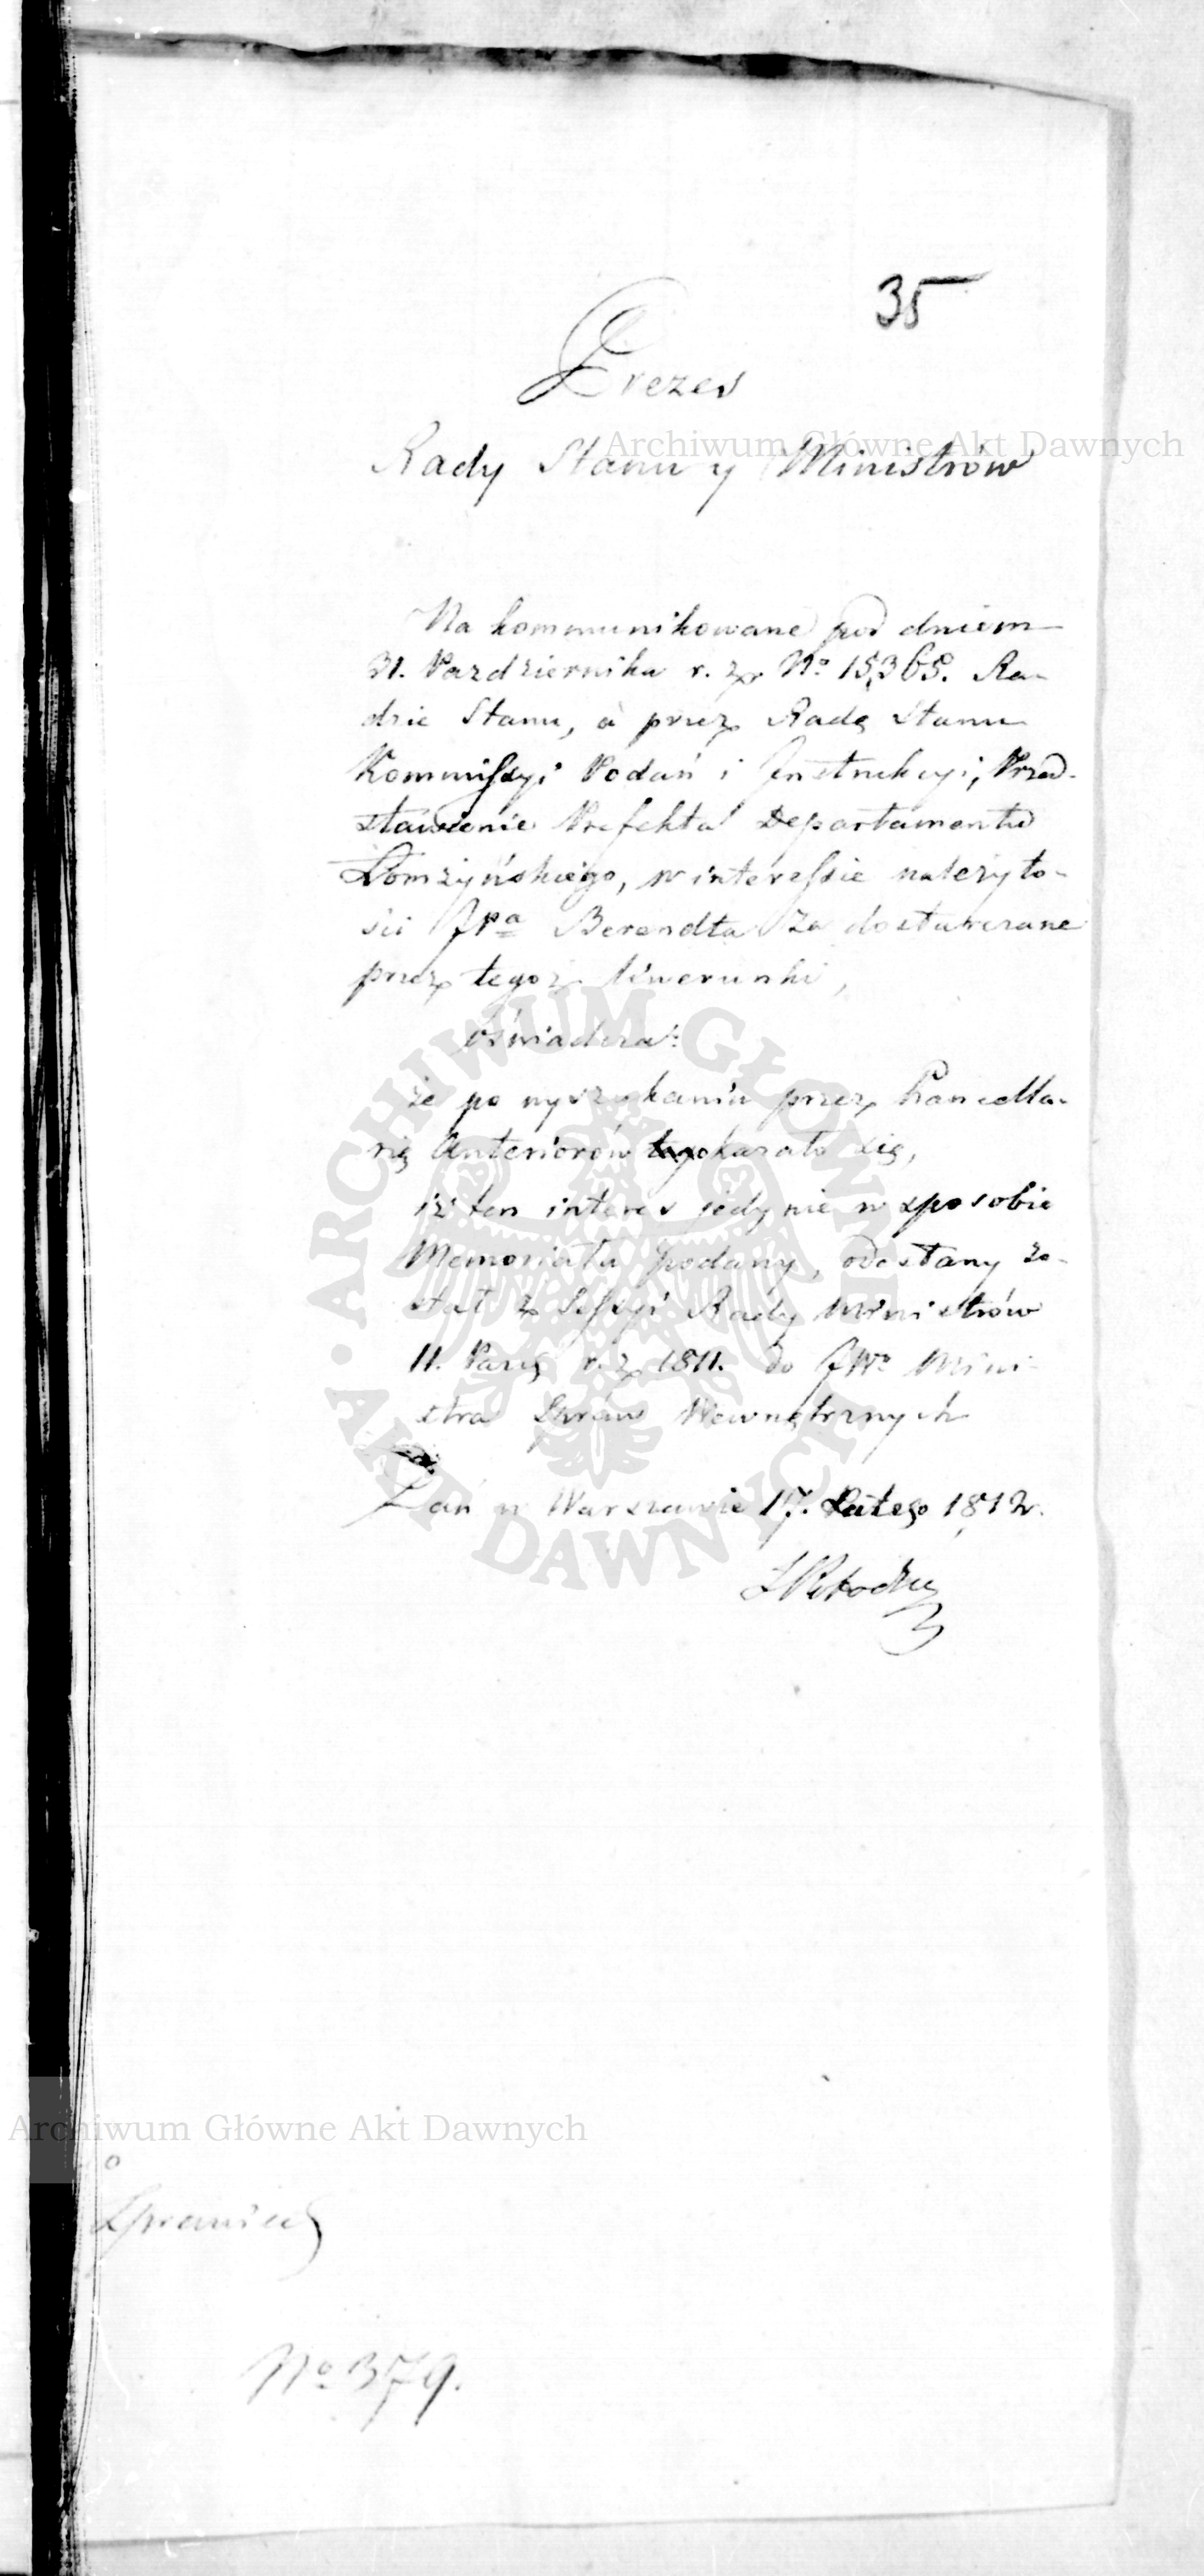 35
Prezes
Archiwum Główne Akt Dawnych
Rady Stanu y Ministrów
Na kommunikowane pod dniem
31. Pazdziernika r. z. No 15,365. Ra-
dzie Stanu, à przez Radę Stanu
Kommissyi Podań i Instrukcyi, Przed-
stawienie Prefekta Departamentu
Łomżyńskiego, w interessie należyto-
ści JPa Berendta za dostawczane
przez tegoż liwerunki,
Oświadcza:
że po wyszukaniu przez Kancella-
rię Anteriorów okazało się,
iż ten interes jedynie w sposobie
Memoriału podany, odesłany zo-
stał z Sessyi Rady Ministrów
11. Paźg r. z. 1811. do JWo Mini-
stra Spraw Wewnętrznych
Dań w Warszawie 17. Lutego 1812.
SPotocki
ARCHIWUM GŁÓWNE • AKT DAWNYCH •
Archiwum Główne Akt Dawnych
No 379.